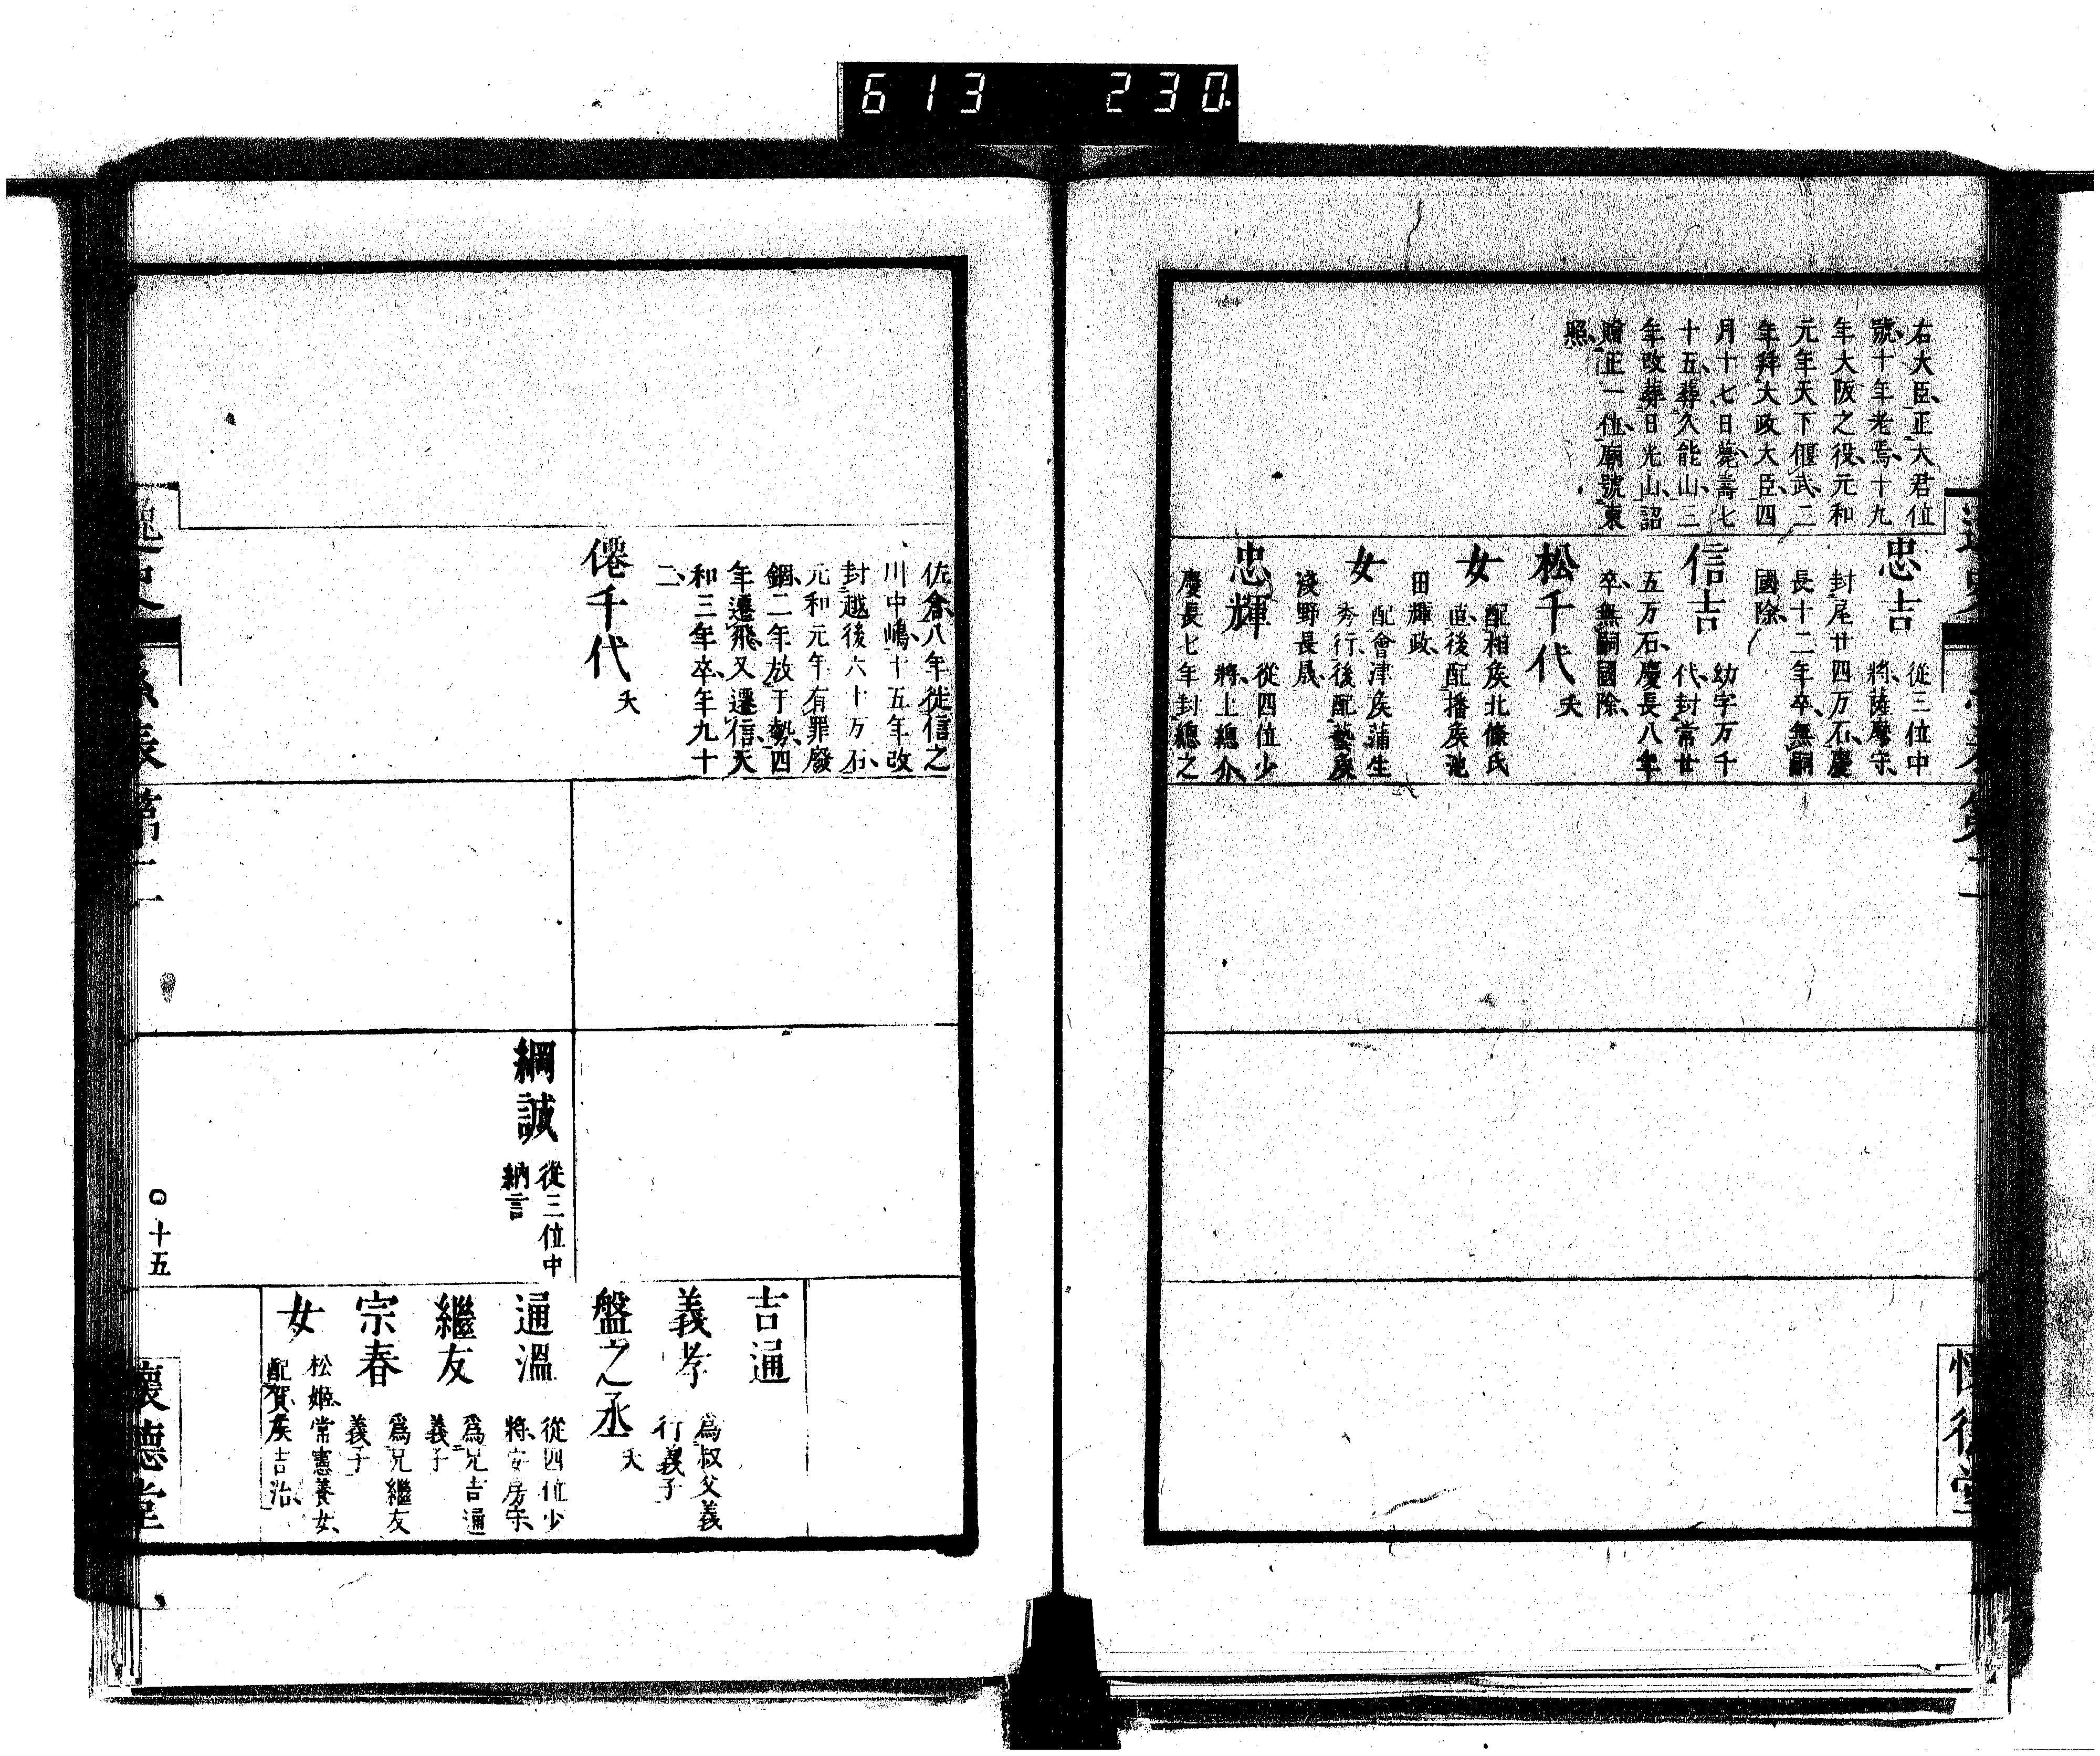 613 230
右大臣正大君位
號十年老焉十九
年大阪之役元和
元年天下偃武二
年拜大政大臣四
月十七日薨壽七
十五葬久能山三
年改葬日光山詔
贈正一位廟號東
照
忠吉
從三位中
將薩摩守
封尾廿四万石慶
長十二年卒無嗣
國除
信吉
幼字万千
代封常廿
五万石慶長八年
卒無嗣國除
松千代
夭
女
配相矦北條氏
直後配播矦池
田輝政
女
配會津矦蒲生
秀行後配藝矦
淺野長晟
忠輝
從四位少
將上總介
慶長七年封總之
懷德堂
佐倉八年徙信之
川中嶋十五年改
封越後六十万石
元和元年有罪廢
錮二年放于勢四
年遷飛又遷信天
和三年卒年九十
二
僊千代
夭
綱誠
從三位中
納言
吉通
義孝
爲叔父義
行義子
盤之丞
夭
通溫
從四位少
將安房守
繼友
爲兄吉通
義子
宗春
爲兄繼友
義子
女
松姬常憲養女
配賀矦吉治
逸史
系表第二
○十五
懷德堂